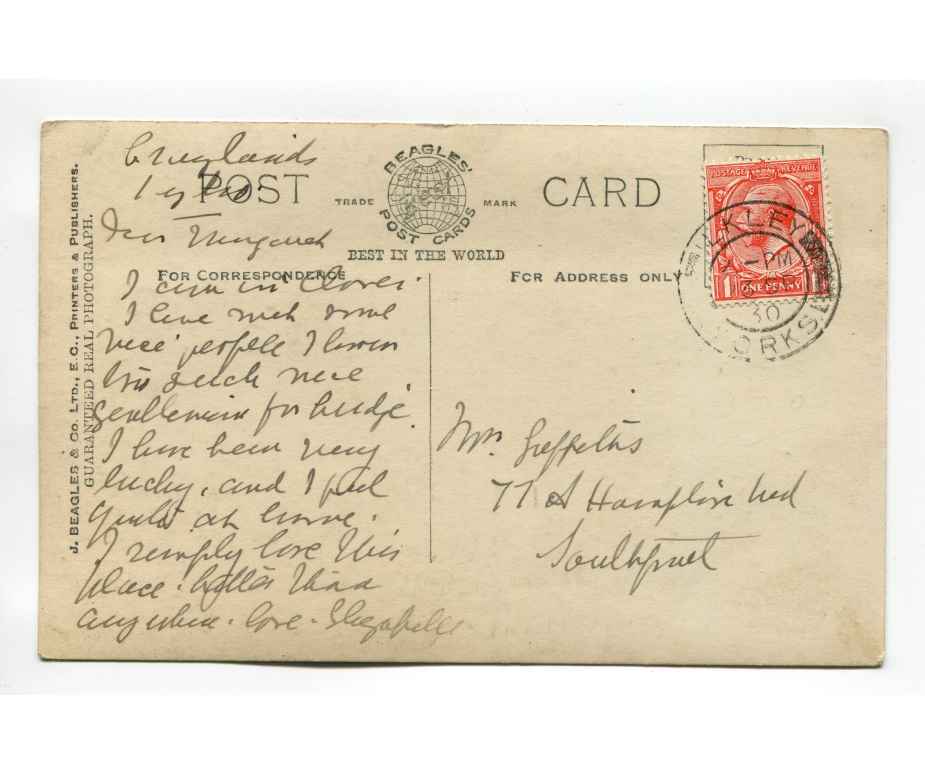 Craiglands
POST CARD
BEAGLES'
POST CARDS
TRADE MARK
BEST IN THE WORLD
FOR CORRESPONDENCE
FOR ADDRESS ONLY
J. BEAGLES & CO. LTD., E.C., PRINTERS & PUBLISHERS.
GUARANTEED REAL PHOTOGRAPH.
Dear Margaret
I am in clover.
I have such some
nice people I know
such nice
gentlemen for bridge.
I have been very
lucky, and I feel
quite at home.
I simply love this
place. better than
anywhere. love.
POSTAGE REVENUE
1 ONE PENNY 1
ILKLEY
PM
30
YORKS.
Mrs. Griffiths
77 A Road
Southport